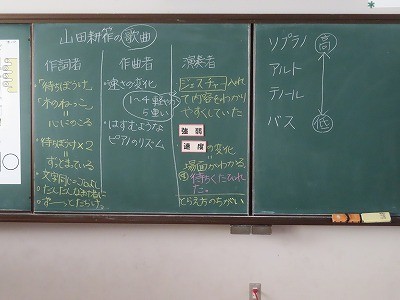 山田耕筰の歌曲
作詞者
・「待ちぼうけ」
「木のねっこ」
=
・待ちぼうけ×2
=
ずっとまっている
作曲者
・速さの変化
1〜4 軽やか
5 重い
・はずむような
ピアノのリズム
演奏者
ジェスチャー入れ
て内容をわかり
やすくしていた
強弱
速度の変化
=
場面がわかる
待ちくたびれ
た。
とらえ方のちがい
ソプラノ 高
アルト
テノール
バス 低